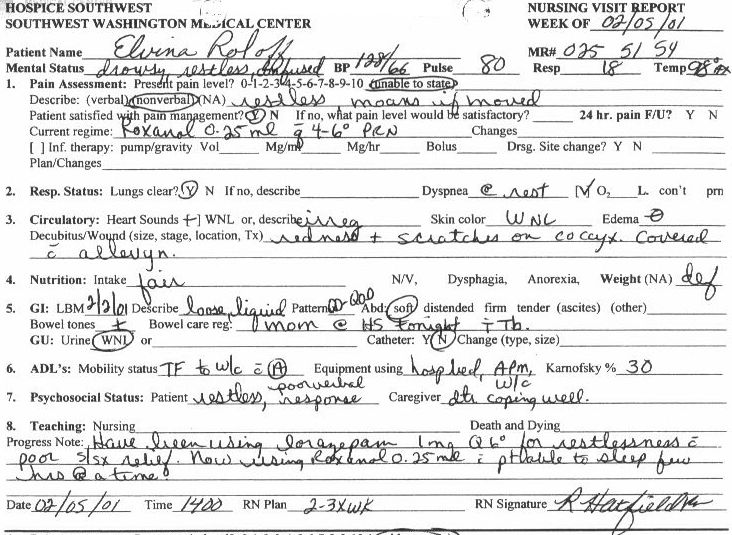 HOSPICE SOUTHWEST NURSING VISIT REPORT
SOUTHWEST WASHINGTON MEDICAL CENTER WEEK OF 02/05/01
Patient Name Elvina Roloff MR# 025 51 54
Mental Status drowsy, restless, confused BP 128/66 Pulse 80 Resp 18 Temp 98° ax
1. Pain Assessment: Present pain level? 0-1-2-3-4-5-6-7-8-9-10 (unable to state)
Describe: (verbal) (nonverbal) (NA) restless moans if moved
Patient satisfied with pain management? Y N If no, what pain level would be satisfactory? 24 hr. pain F/U? Y N
Current regime: Roxanol 0.25 ml q 4-6° PRN Changes
[ ] Inf. therapy: pump/gravity Vol Mg/ml Mg/hr Bolus Drsg. Site change? Y N
Plan/Changes
2. Resp. Status: Lungs clear? Y N If no, describe Dyspnea @ rest [✓] O2 L. con't prn
3. Circulatory: Heart Sounds [+] WNL or, describe irreg Skin color WNL Edema ⊖
Decubitus/Wound (size, stage, location, Tx) redness + scratches on coccyx. Covered
c̄ allevyn.
4. Nutrition: Intake fair N/V, Dysphagia, Anorexia, Weight (NA) def
5. GI: LBM 2/2/01 Describe loose, liquid Pattern QD-QOD Abd: soft distended firm tender (ascites) (other)
Bowel tones + Bowel care reg: mom @ HS tonight Tb.
GU: Urine WNL or Catheter: Y N Change (type, size)
6. ADL's: Mobility status TF to w/c c̄ (A) Equipment using hosp bed, APM, w/c Karnofsky % 30
7. Psychosocial Status: Patient restless, poor verbal response Caregiver dtr coping well.
8. Teaching: Nursing Death and Dying
Progress Note: Have been using lorazepam 1mg Q 6° for restlessness c̄
poor s/sx relief. Now using Roxanol 0.25 ml c̄ pt able to sleep few
hrs @ a time.
Date 02/05/01 Time 1400 RN Plan 2-3xwk RN Signature R Hatfield RN